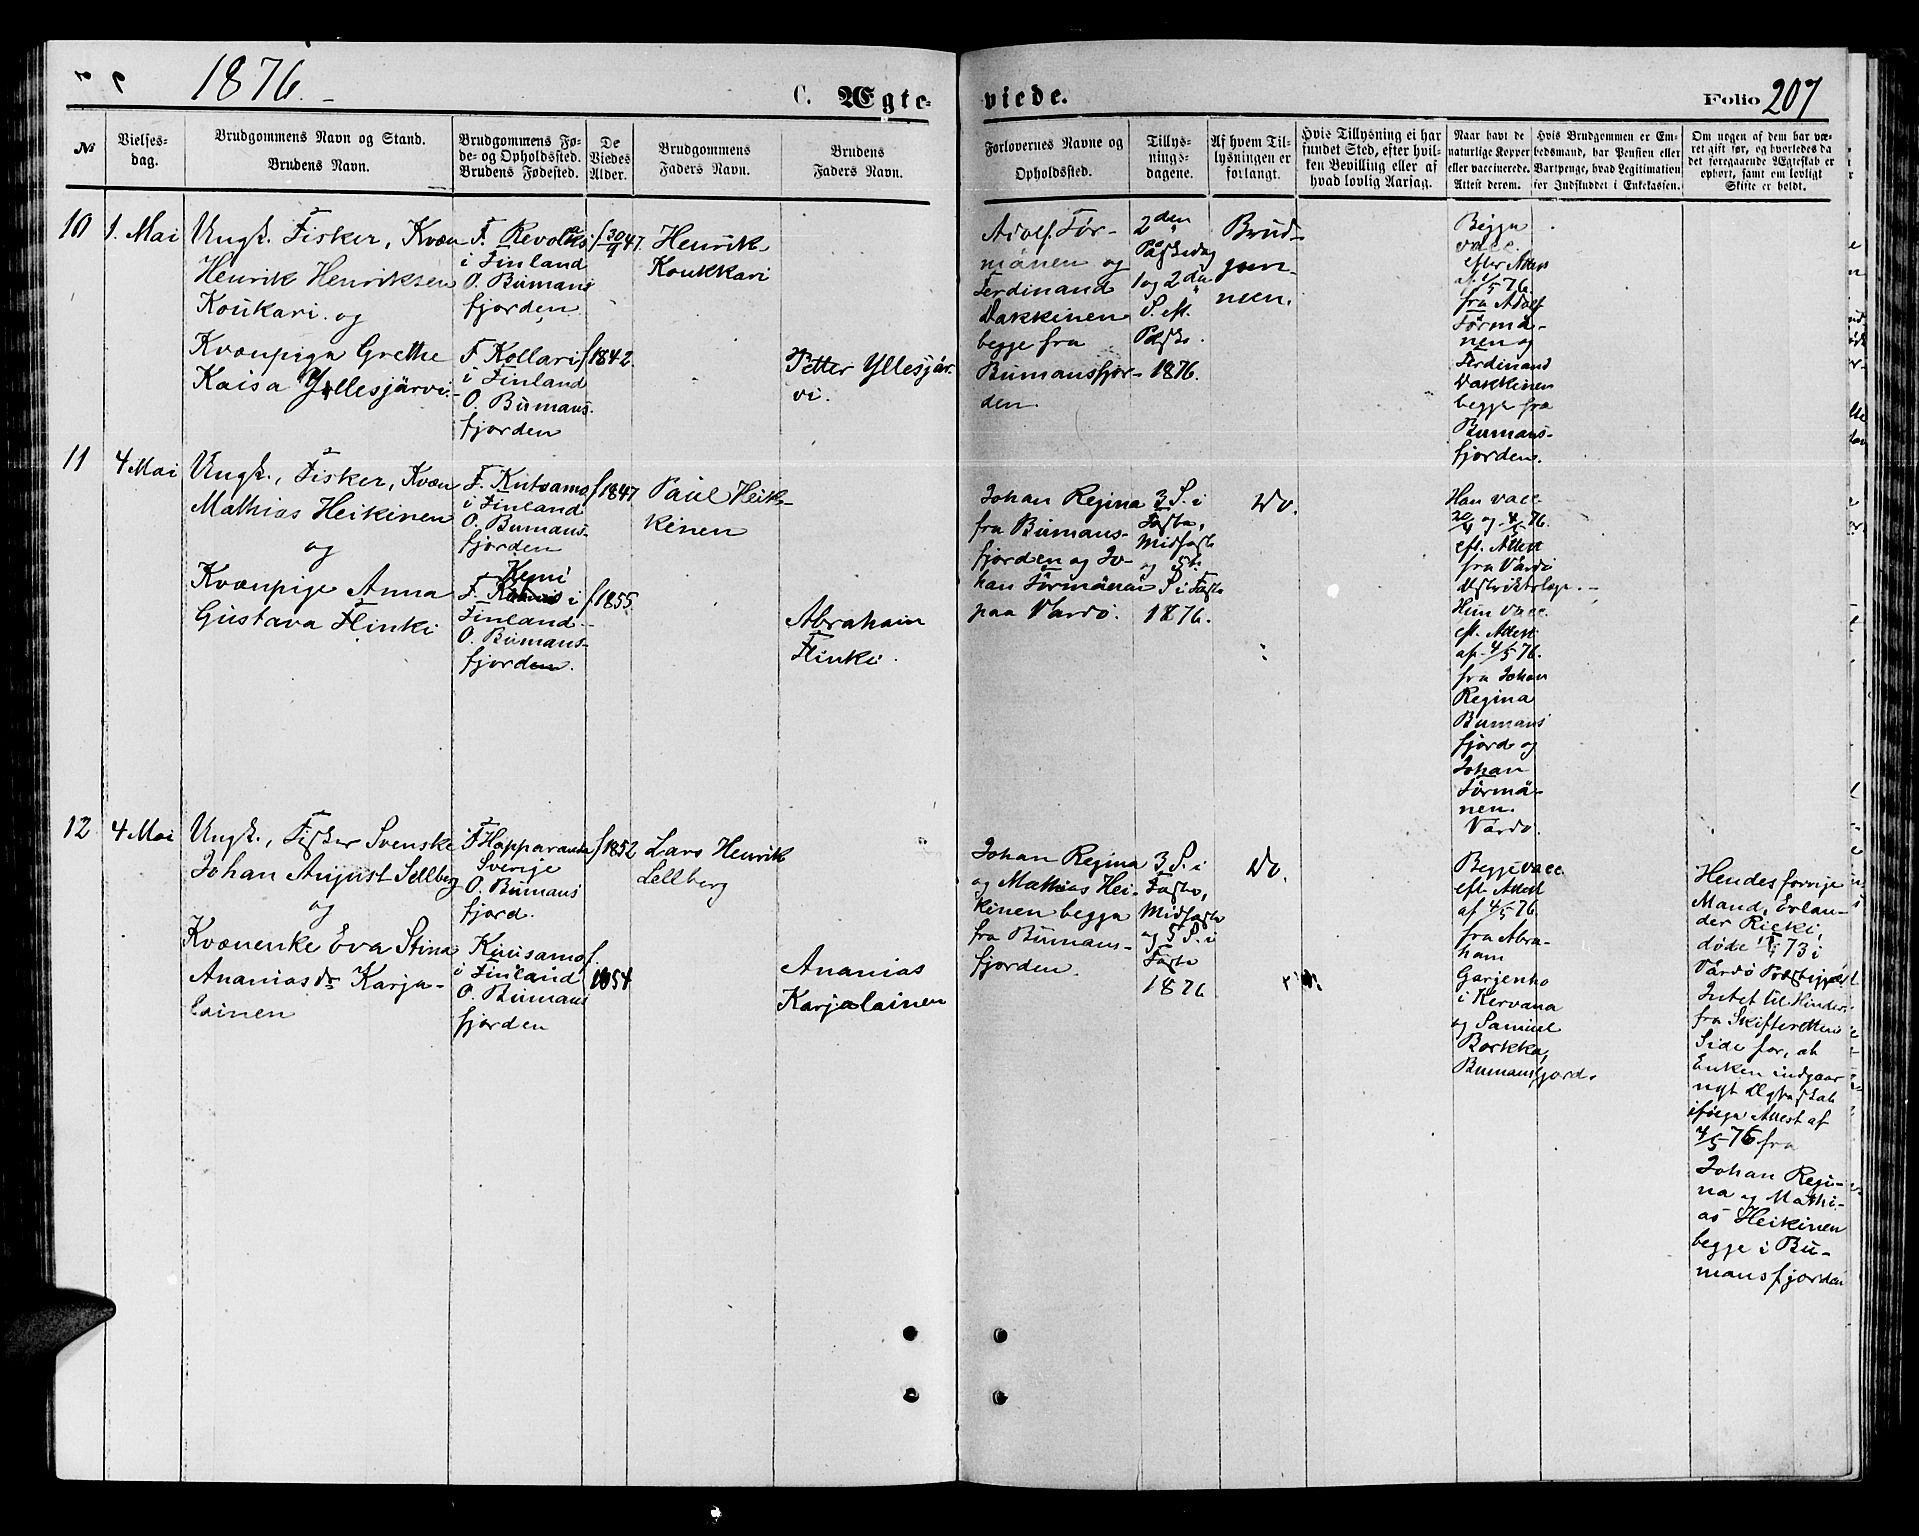 1876.
C. Ægte-
viede.
Folio 207
No
Vielses-
dag.
Brudgommens Navn og Stand.
Brudens Navn.
Brudgommens Fø-
de- og Opholdssted.
Brudens Fødested.
De
Viedes
Alder.
Brudgommens
Faders Navn.
Brudens
Faders Navn.
Forlovernes Navne og
Opholdssted.
Tillys-
nings-
dagene.
Af hvem Til-
lysningen er
forlangt.
Hvis Tillysning ei har
fundet Sted, efter hvil-
ken Bevilling eller af
hvad lovlig Aarsag.
Naar havt de
naturlige Kopper
eller vaccinerede.
Attest derom.
Hvis Brudgommen er Em-
bedsmand, har Pension eller
Vartpenge, hvad Legitimation
for Indskuddet i Enkekassen.
Om nogen af dem har væ-
ret gift før, og hvorledes da
det foregaaende Ægteskab er
ophørt, samt om lovligt
Skifte er holdt.
10
1. Mai
Ungk. Fisker, Kvæn
Henrik Henriksen
Koukari. og
Kvænpiga Grethe
Kaisa Yllesjärvi.
F. Revolks
i Finland
O. Bumans
fjorden.
F Kollari
i Finland
O. Bumans.
fjorden
f 30/9 47.
f 1842.
Henrik
Koukkari
Petter Yllesjär.
vi.
Adolf. För-
mänen og
Ferdinand
Vakkinen
begge fra
Bumansfjor-
den.
2den
Påskedag
1 og 2 den
S. eft.
Påske.
1876.
Brud-
gom-
men.
Begge
vacc.
efter Attest
af 1/5 76.
fra Adolf
Förmä-
nen og
Ferdinand
Vakkinen
begge fra
Bumans-
fjorden.
11
4 Mai
Ungk., Fisker, Kvæn
Mathias Heikinen
og
Kvænpige Anna
Gustava Flinki
F. Kutsamo
i Finland
O. Bumans-
fjorden
Kemi
F. i
Finland.
O. Bumans-
fjorden.
f 1847
f 1855
Paul Heik-
kinen
Abraham
Flinki.
Johan Regina
fra Bumans-
fjorden og Jo-
han Förmänen
paa Vardö.
3 S. i
Faste,
Midfaste
og 5te
S i Faste
1876.
Do.
Han vacc.
20/4 og 4/5 76.
eft. Attest
fra Vardö
Distriktslæge.
Hun vacc.
eft. Attest
af 4/5 76.
fra Johan
Regina
Bumans
fjord og
Johan
Förmä-
nen.
Vardö.
12
4 Mai
Ungk., Fisker Svenske
Johan August Sellberg
og
Kvænenke Eva Stina
Ananiasdr Karja-
lainen
F Happaranda
Sverige
O. Bumans
fjord.
Kuusamo
i Finland
O. Bumans
fjorden
f 1852
f.
1854
Lars Henrik
Sellberg
Ananias
Karjalainen
Johan Regina
og Mathias Hei-
kinen begge
fra Bumans-
fjorden.
3 S. i
Faste,
Midfaste
og 5 S. i
Faste
1876
Do.
Begge vacc
eft Attest
af 4/5 76.
fra Abra-
ham
Garjenho
i Kervana
og Samuel
Borkka,
Bumansfjord.
Hendes forrige
Mand, Erlan-
der Rieki,
døde 73 i
Vardö Præstegjæld
Intet til Hinder
fra Skifterettens
Side for, at
Enken indgaar
nyt Ægteskab
ifølge Attest af
4/5 76 fra
Johan Regi-
na og Mathi-
as Heikinen
begge i Bu-
mansfjorden